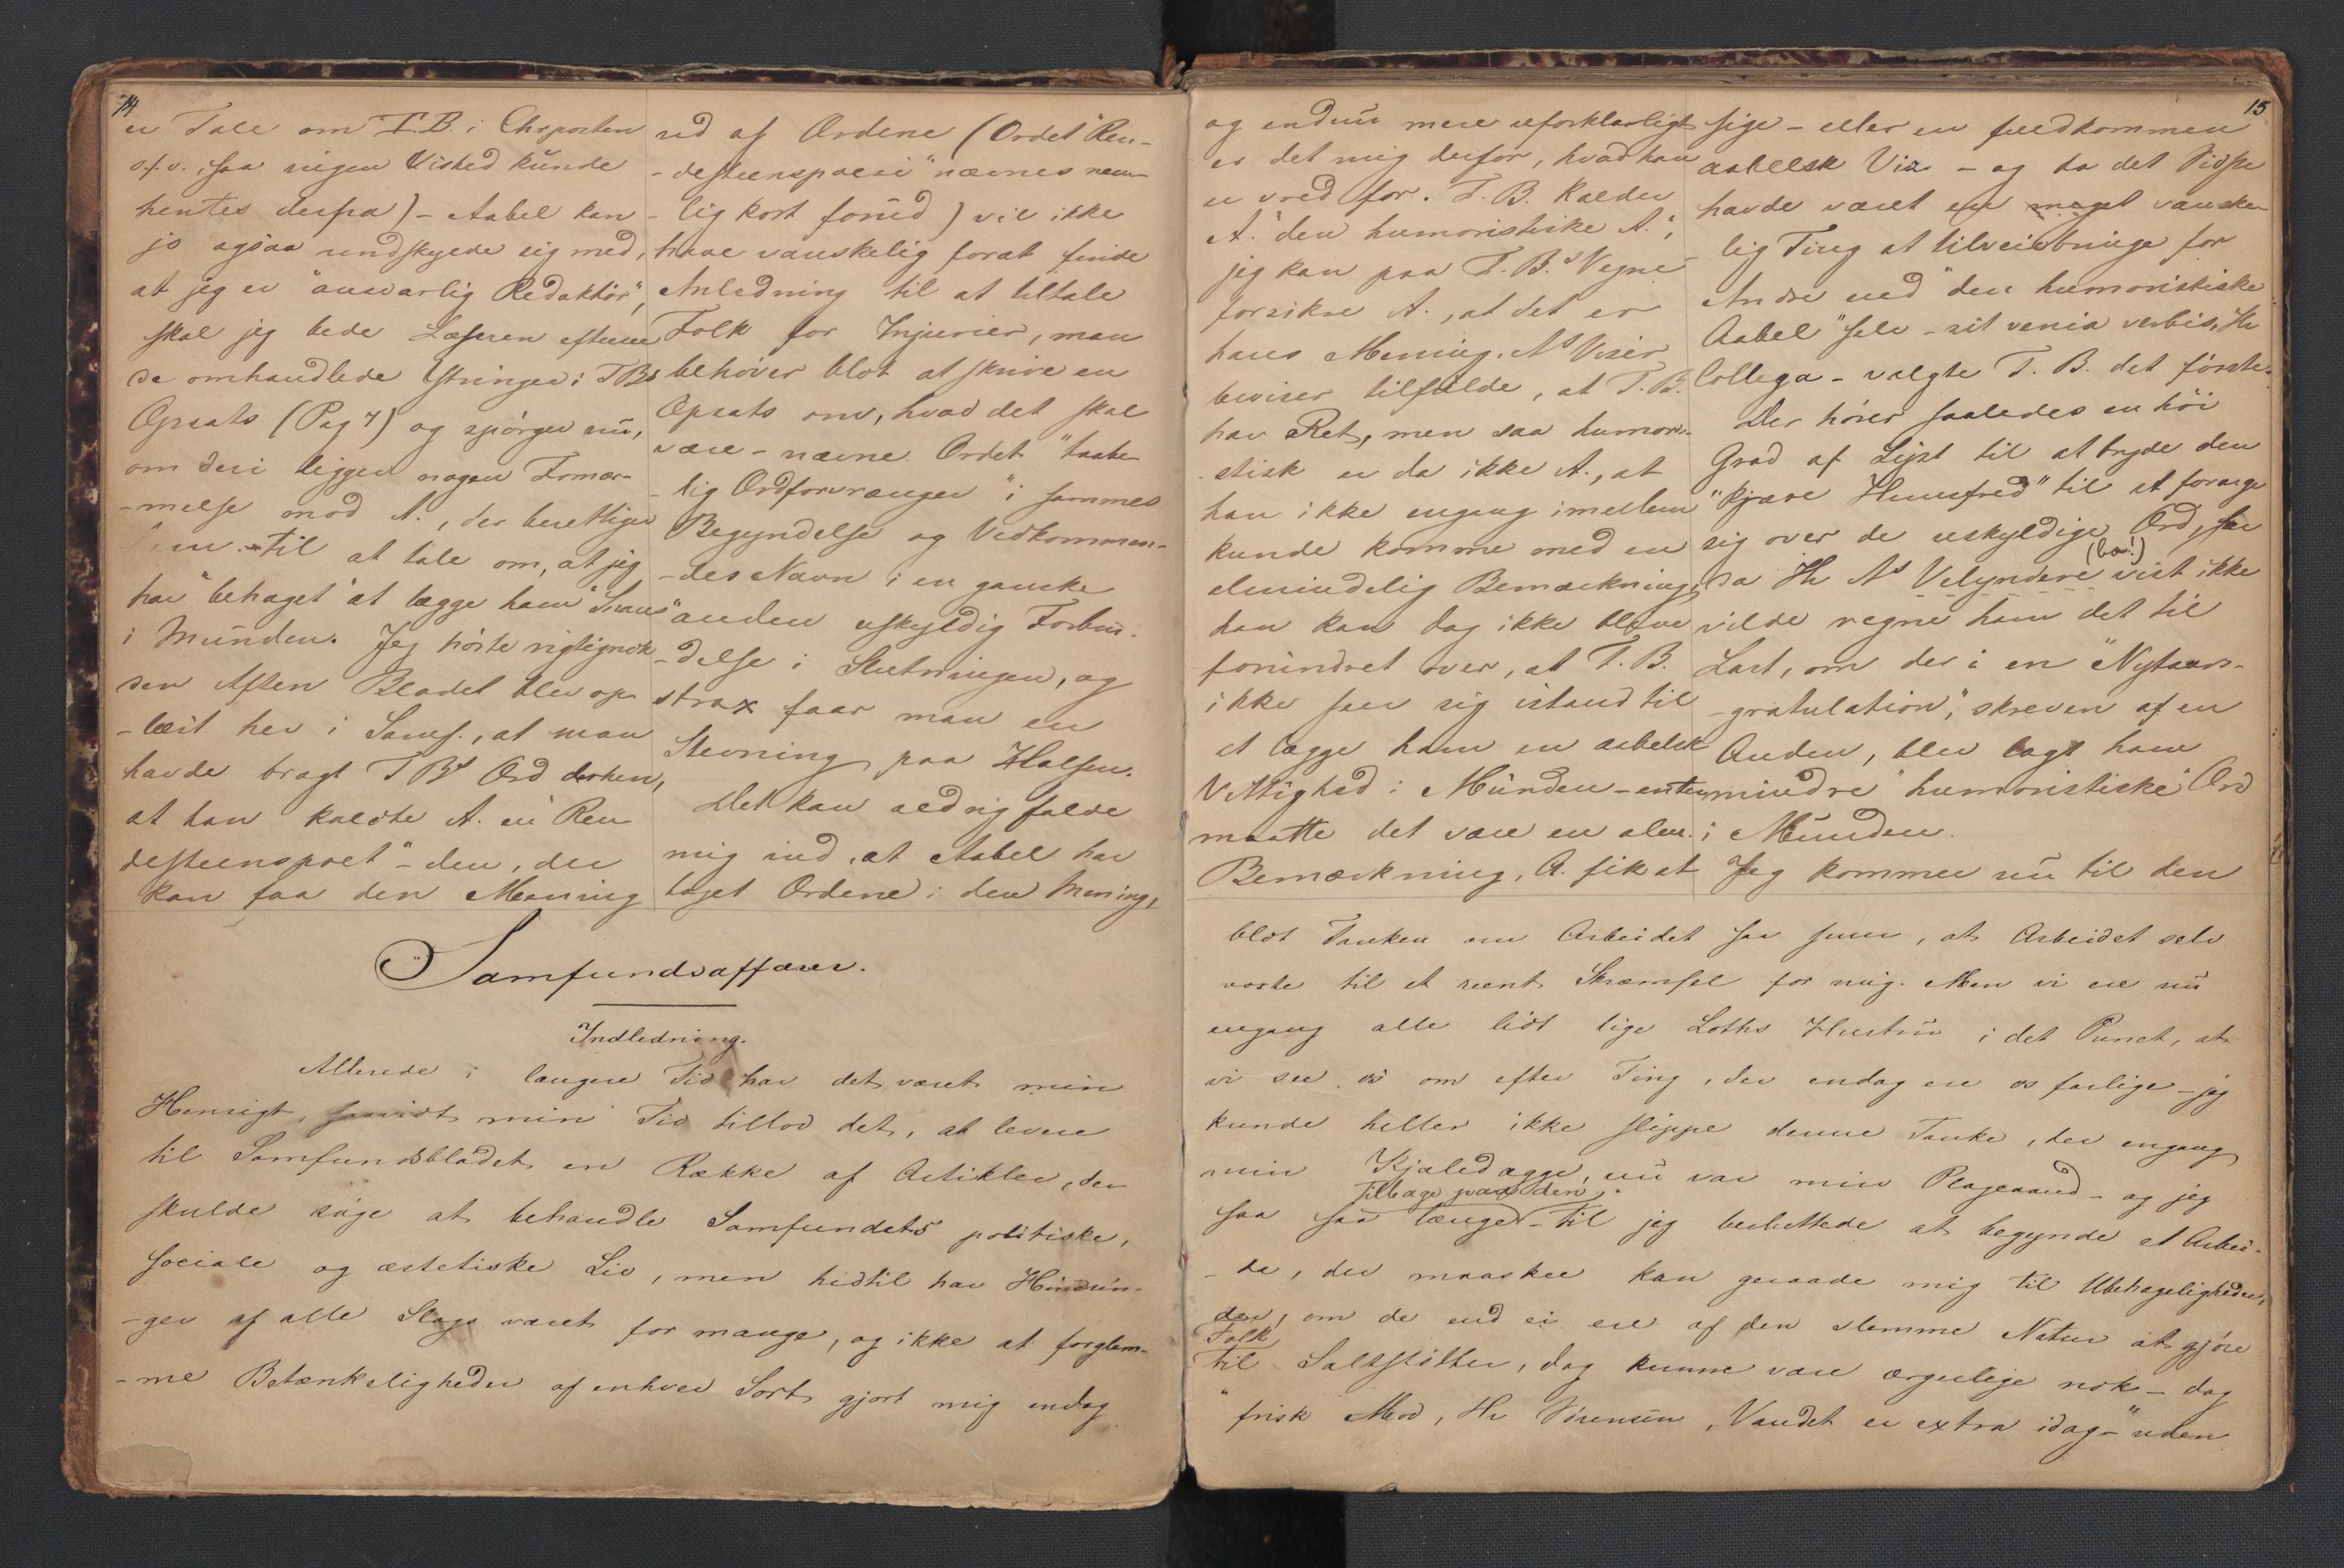 14
er Tale om T.B. i Chrposten
o.s.v., saa ingen Vished kunde
hentes derfra) - Aabel kan
jo ogsaa undskylde sig med,
at jeg er "ansvarlig Redaktör",
skal jeg bede Læseren efterse
de omhandlede Ytringer i TBs
Opsats (Pag 7) og spörger nu,
om deri ligger nogen Fornær-
-melse mod A., der berettiger
til at tale om, at jeg
har "behaget" at lægge ham "Snaus"
i Munden. Jeg hörte rigtignok
den Aften Bladet blev op-
-læst her i Samf., at man
havde bragt T Bs Ord derhen,
at han kaldte A. en "Ren-
desteenspoet" - den, der
kan faa den Mening
ud af Ordene (Ordet "Ren-
-desteenspoesi" nævnes nem-
-lig kort forud) vil ikke
have vanskelig forat finde
Anledning til at tiltale
Folk for Injurier, man
behöver blot at skrive en
Opsats om, hvad det skal
være - nævne Ordet "taabe-
-lig Ordforvrænger" i sammes
Begyndelse og Vedkommen-
-des Navn i en ganske
anden uskyldig Forbin-
-delse i Slutningen, og
strax faar man en
Stevning paa Halsen.
Det kan aldrig falde
mig ind, at Aabel har
taget Ordene i den Mening,
Samfundsaffærer.
Indledning.
Allerede i længere Tid har det været min
Hensigt, saavidt min Tid tillod det, at levere
til Samfundsbladet en Række af Artikler, der
skulde söge at behandle Samfundets politiske,
sociale og æstetiske Liv, men hidtil har Hindrin-
-ger af alle Slags været for mange, og ikke at forglem-
-me Betænkeligheder af enhver Sort gjort mig endog
15
og endnu mere uforklarligt
er det mig derfor, hvad han
er vred for. T.B. kalder
A. "den humoristiske A.",
jeg kan paa T.B.s Vegne
forsikre A., at det er
hans Mening. As Viser
beviser tilfulde, at T.B.
har Ret, men saa humori-
-stisk er da ikke A., at
han ikke engang imellem
kunde komme med en
almindelig Bemærkning,
han kan dog ikke blive
forundret over, at T.B.
ikke saa sig istand til
at lægge ham en aabelsk
Vittighed i Munden - enten
maatte det være en alm.
Bemærkning, A. fik at
sige - eller en fuldkommen
aabelsk Vis - og da det Sidste
havde været en meget vanske-
-lig Ting at tilveiebringe for
Andre end "den humoristiske
Aabel" selv - sit venia verbis, Hr
Collega - valgte T.B. det förste.
Der hörer saaledes en höi
Grad af Lyst til at bryde den
"kjære Huusfred" til at forarge
sig over de uskyldige Ord,
da Hr As Velyndere (bou!) vist ikke
vilde regne ham det til
Last, om der i en "Nytaars-
-gratulation", skreven af en
Anden, blev lagt ham
mindre "humoristiske" Ord
i Munden.
Jeg kommer nu til den
blot Tanken om Arbeidet saa, at Arbeidet selv
voxte til et reent Skræmsel for mig. Men vi ere nu
engang alle lidt lige Loths Hustru i det Punct, at
vi see os om efter Ting, der endog ere os farlige - jeg
kunde heller ikke slippe denne Tanke, der engang
min Kjæledægge, nu var min Plageaand - og jeg
saa saa længe tilbage paa den - til jeg besluttede at begynde et Arbei-
-de, der maaskee kan geraade mig til Ubehageligheder,
der, om de end ei ere af den slemme Natur at gjöre
Folk til Saltstötter, dog kunne være ærgerlige nok - dog
"frisk Mod, Hr Sörensen, Vandet er extra idag -" uden